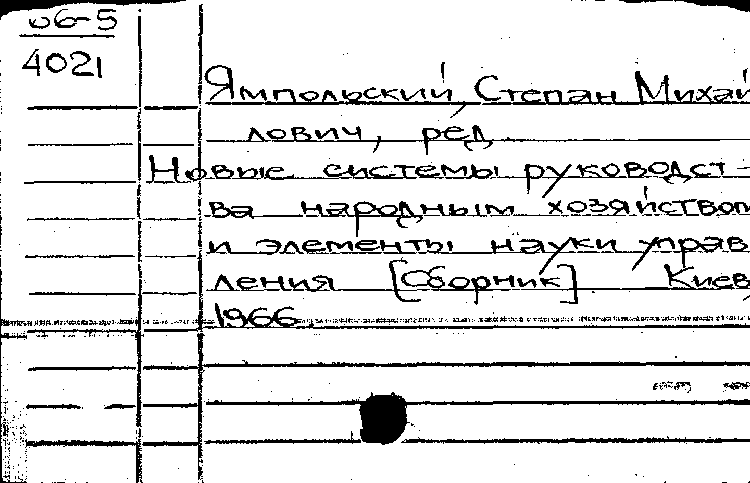 об-5
4021
Ямпольский, Степан Михай
лович, ред.
Новые системы руководст-
ва народным хозяйством
и элементы науки управ
ления [Сборник]. Киев,
1966.